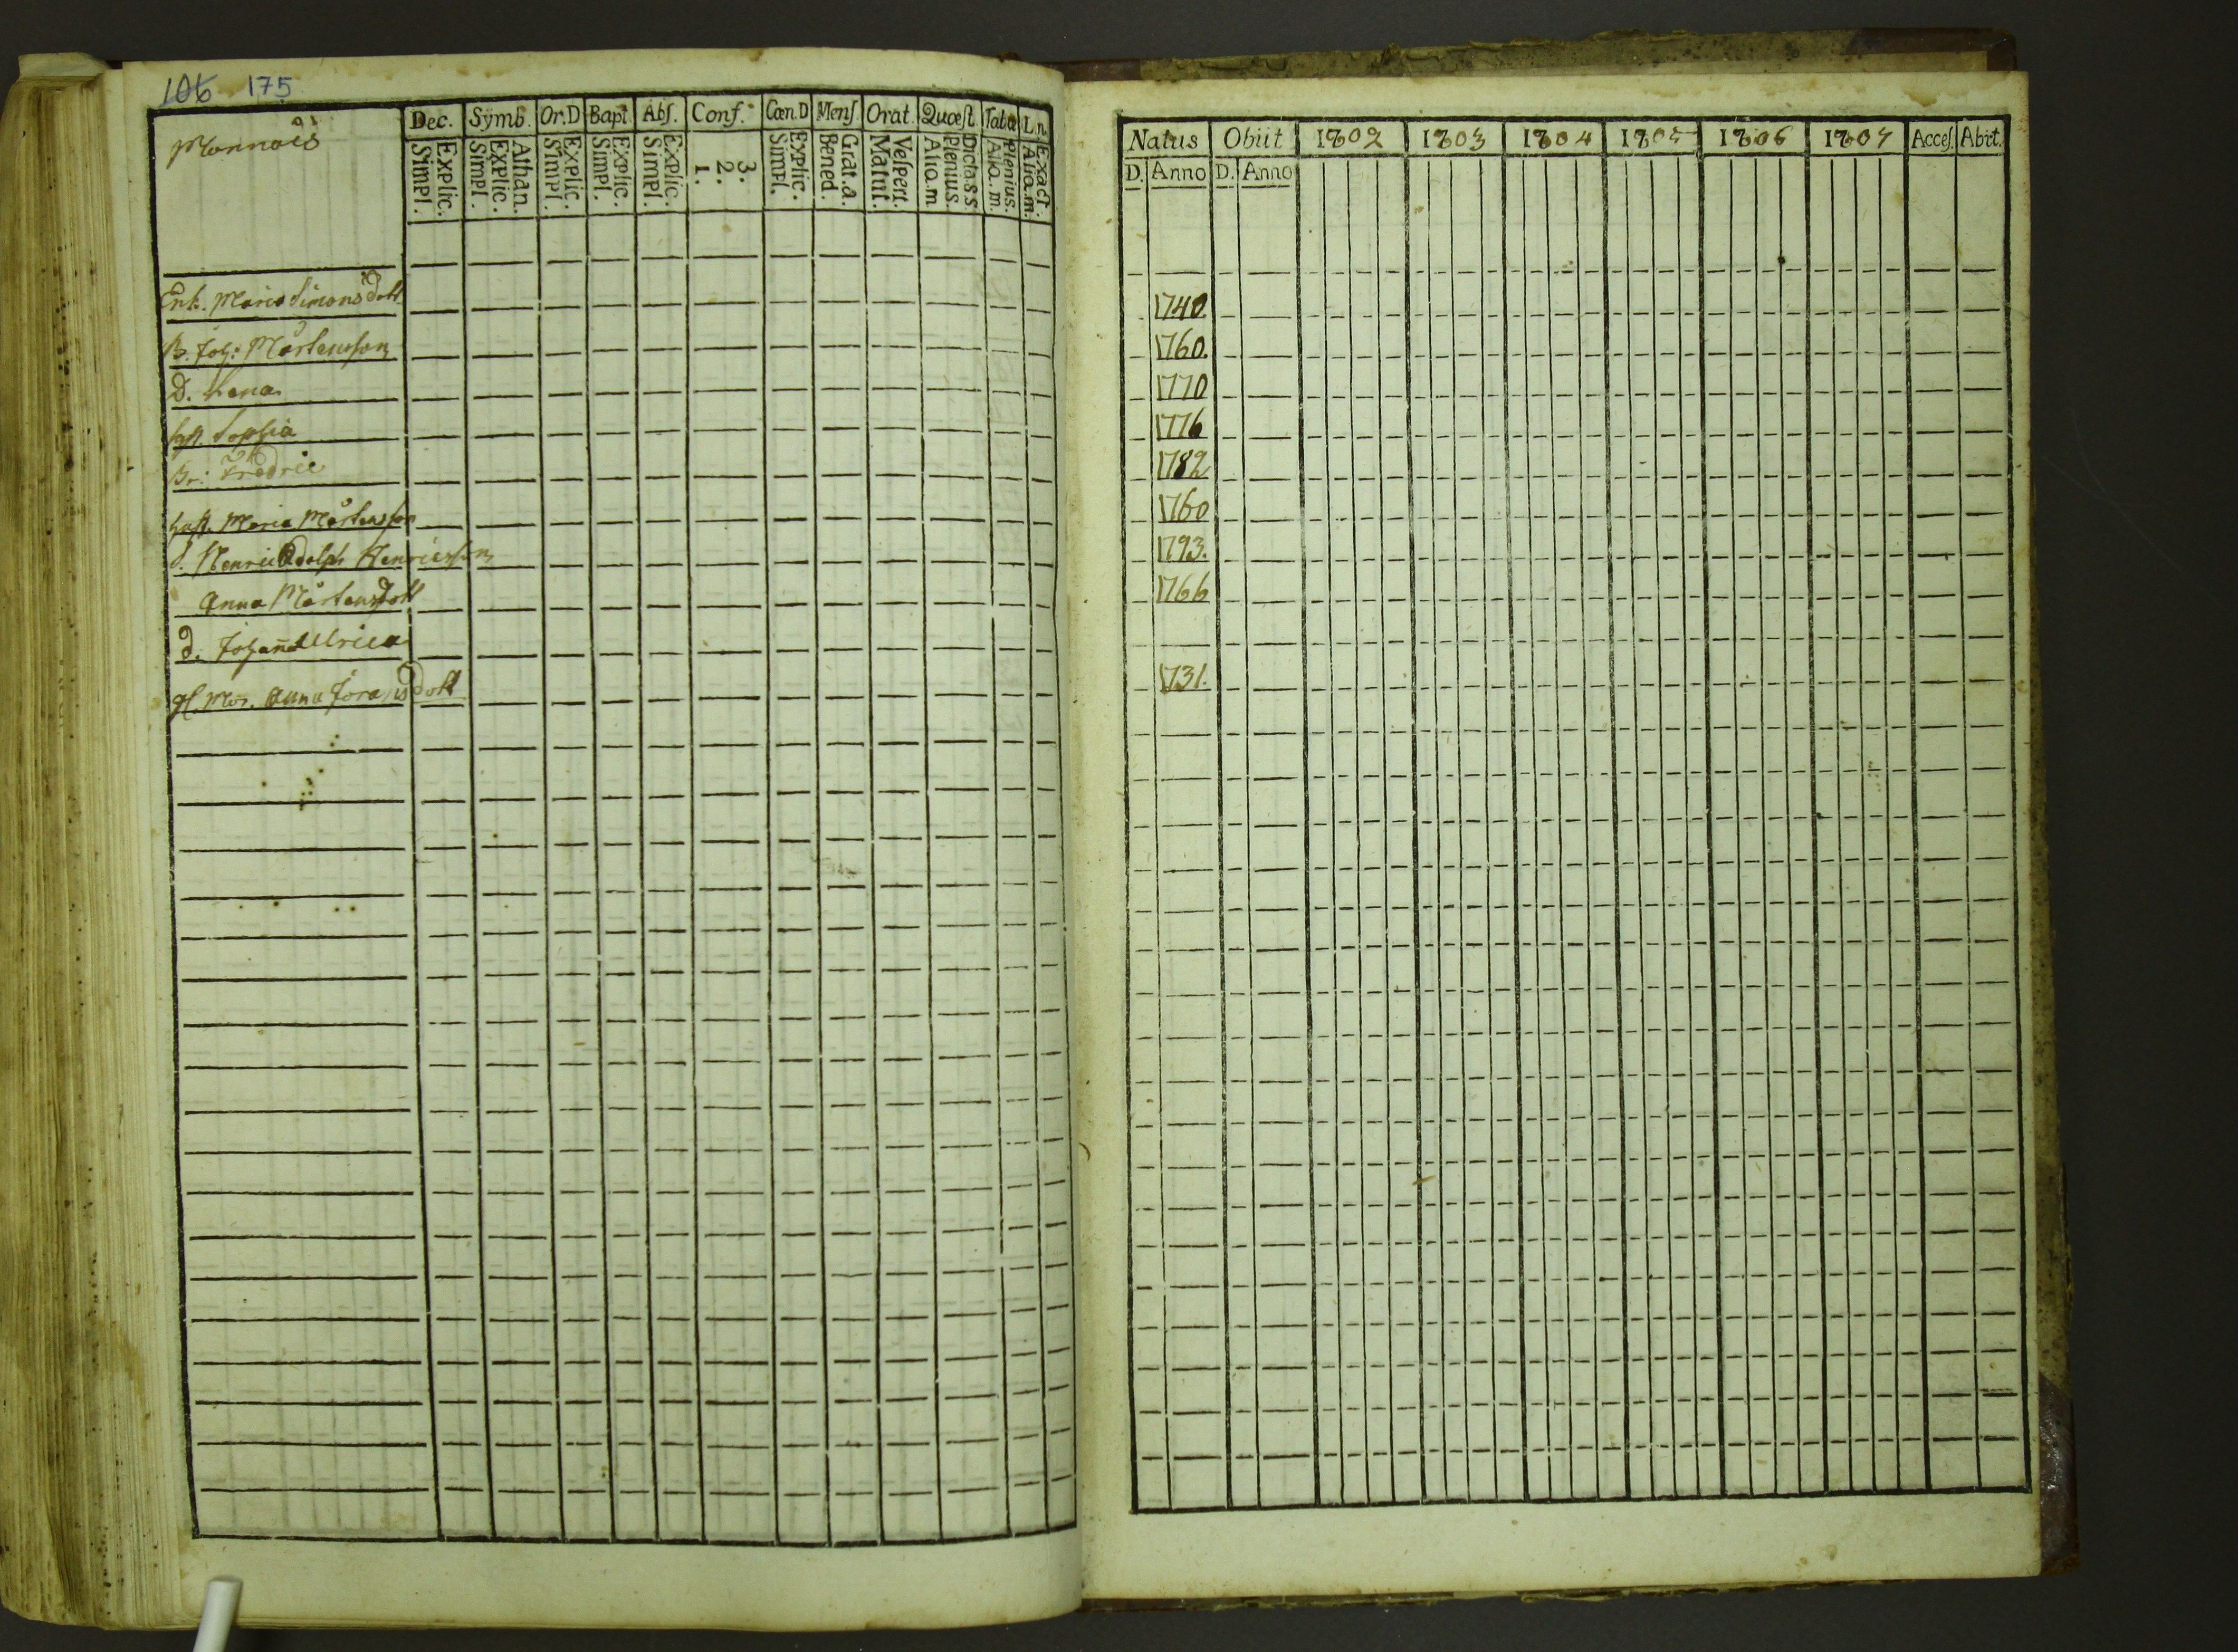 106 175
Mannäis
Dec. Symb. Or.D Bapt. Abſ. Conf. Cœn.D Menſ Orat. Quæſt Tabæ L n
Simpl. Explic. Simpl. Explic. Athan. Simpl. Explic. Simpl. Explic. Simpl. Explic. 1. 2. 3. Simpl. Explic. Bened. Grat.a. Matut. Veſpert. Alio.m plenius Dicta.s.s Alio.m. plenius. Alio.m. Exact.
Enk. Maria Simonsdott
B. Joh: Mårtensson
D. Lena
hust. Sophia
Br: Fredric
hust. Maria Mårtensson
S. Henric Adolph Henricsson
Anna Mårtensdott
d. Johana Ulrica
gl. Mor. Anna Jöransdott
Natus Obiit 1802 1803 1804 1805 1806 1807 Acceſ. Abiit.
D. Anno D. Anno
1740.
1760.
1770
1776
1782
1760
1793.
1766
1731.